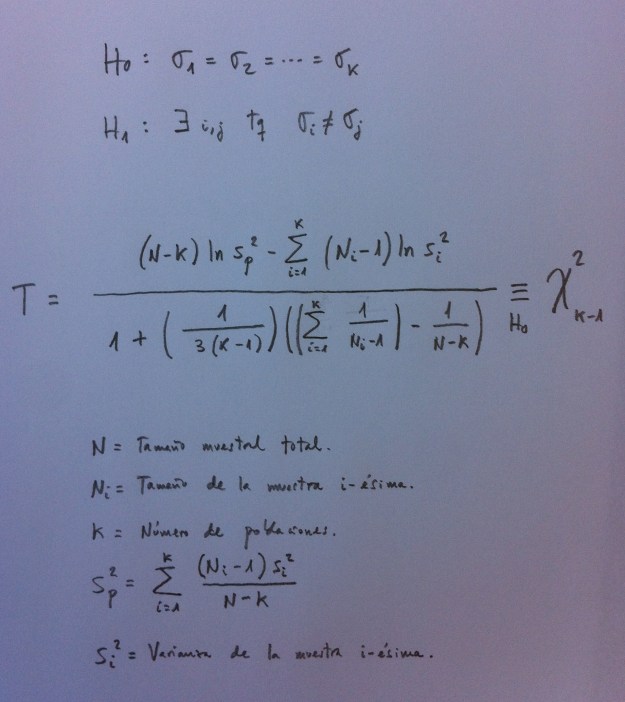 H₀ : σ₁ = σ₂ = ··· = σₖ
H₁ : ∃ i,j tq σᵢ ≠ σⱼ
T = ((N-k) ln sₚ² - ∑ᵢ₌₁ᵏ (Nᵢ-1) ln sᵢ²) / (1 + (1 / 3(k-1)) ((∑ᵢ₌₁ᵏ 1 / Nᵢ-1) - 1 / N-k)) ≡_H₀ χ²ₖ₋₁
N = Tamaño muestral total.
Nᵢ = Tamaño de la muestra i-ésima.
k = Número de poblaciones.
sₚ² = ∑ᵢ₌₁ᵏ (Nᵢ-1) sᵢ² / N-k
sᵢ² = Varianza de la muestra i-ésima.